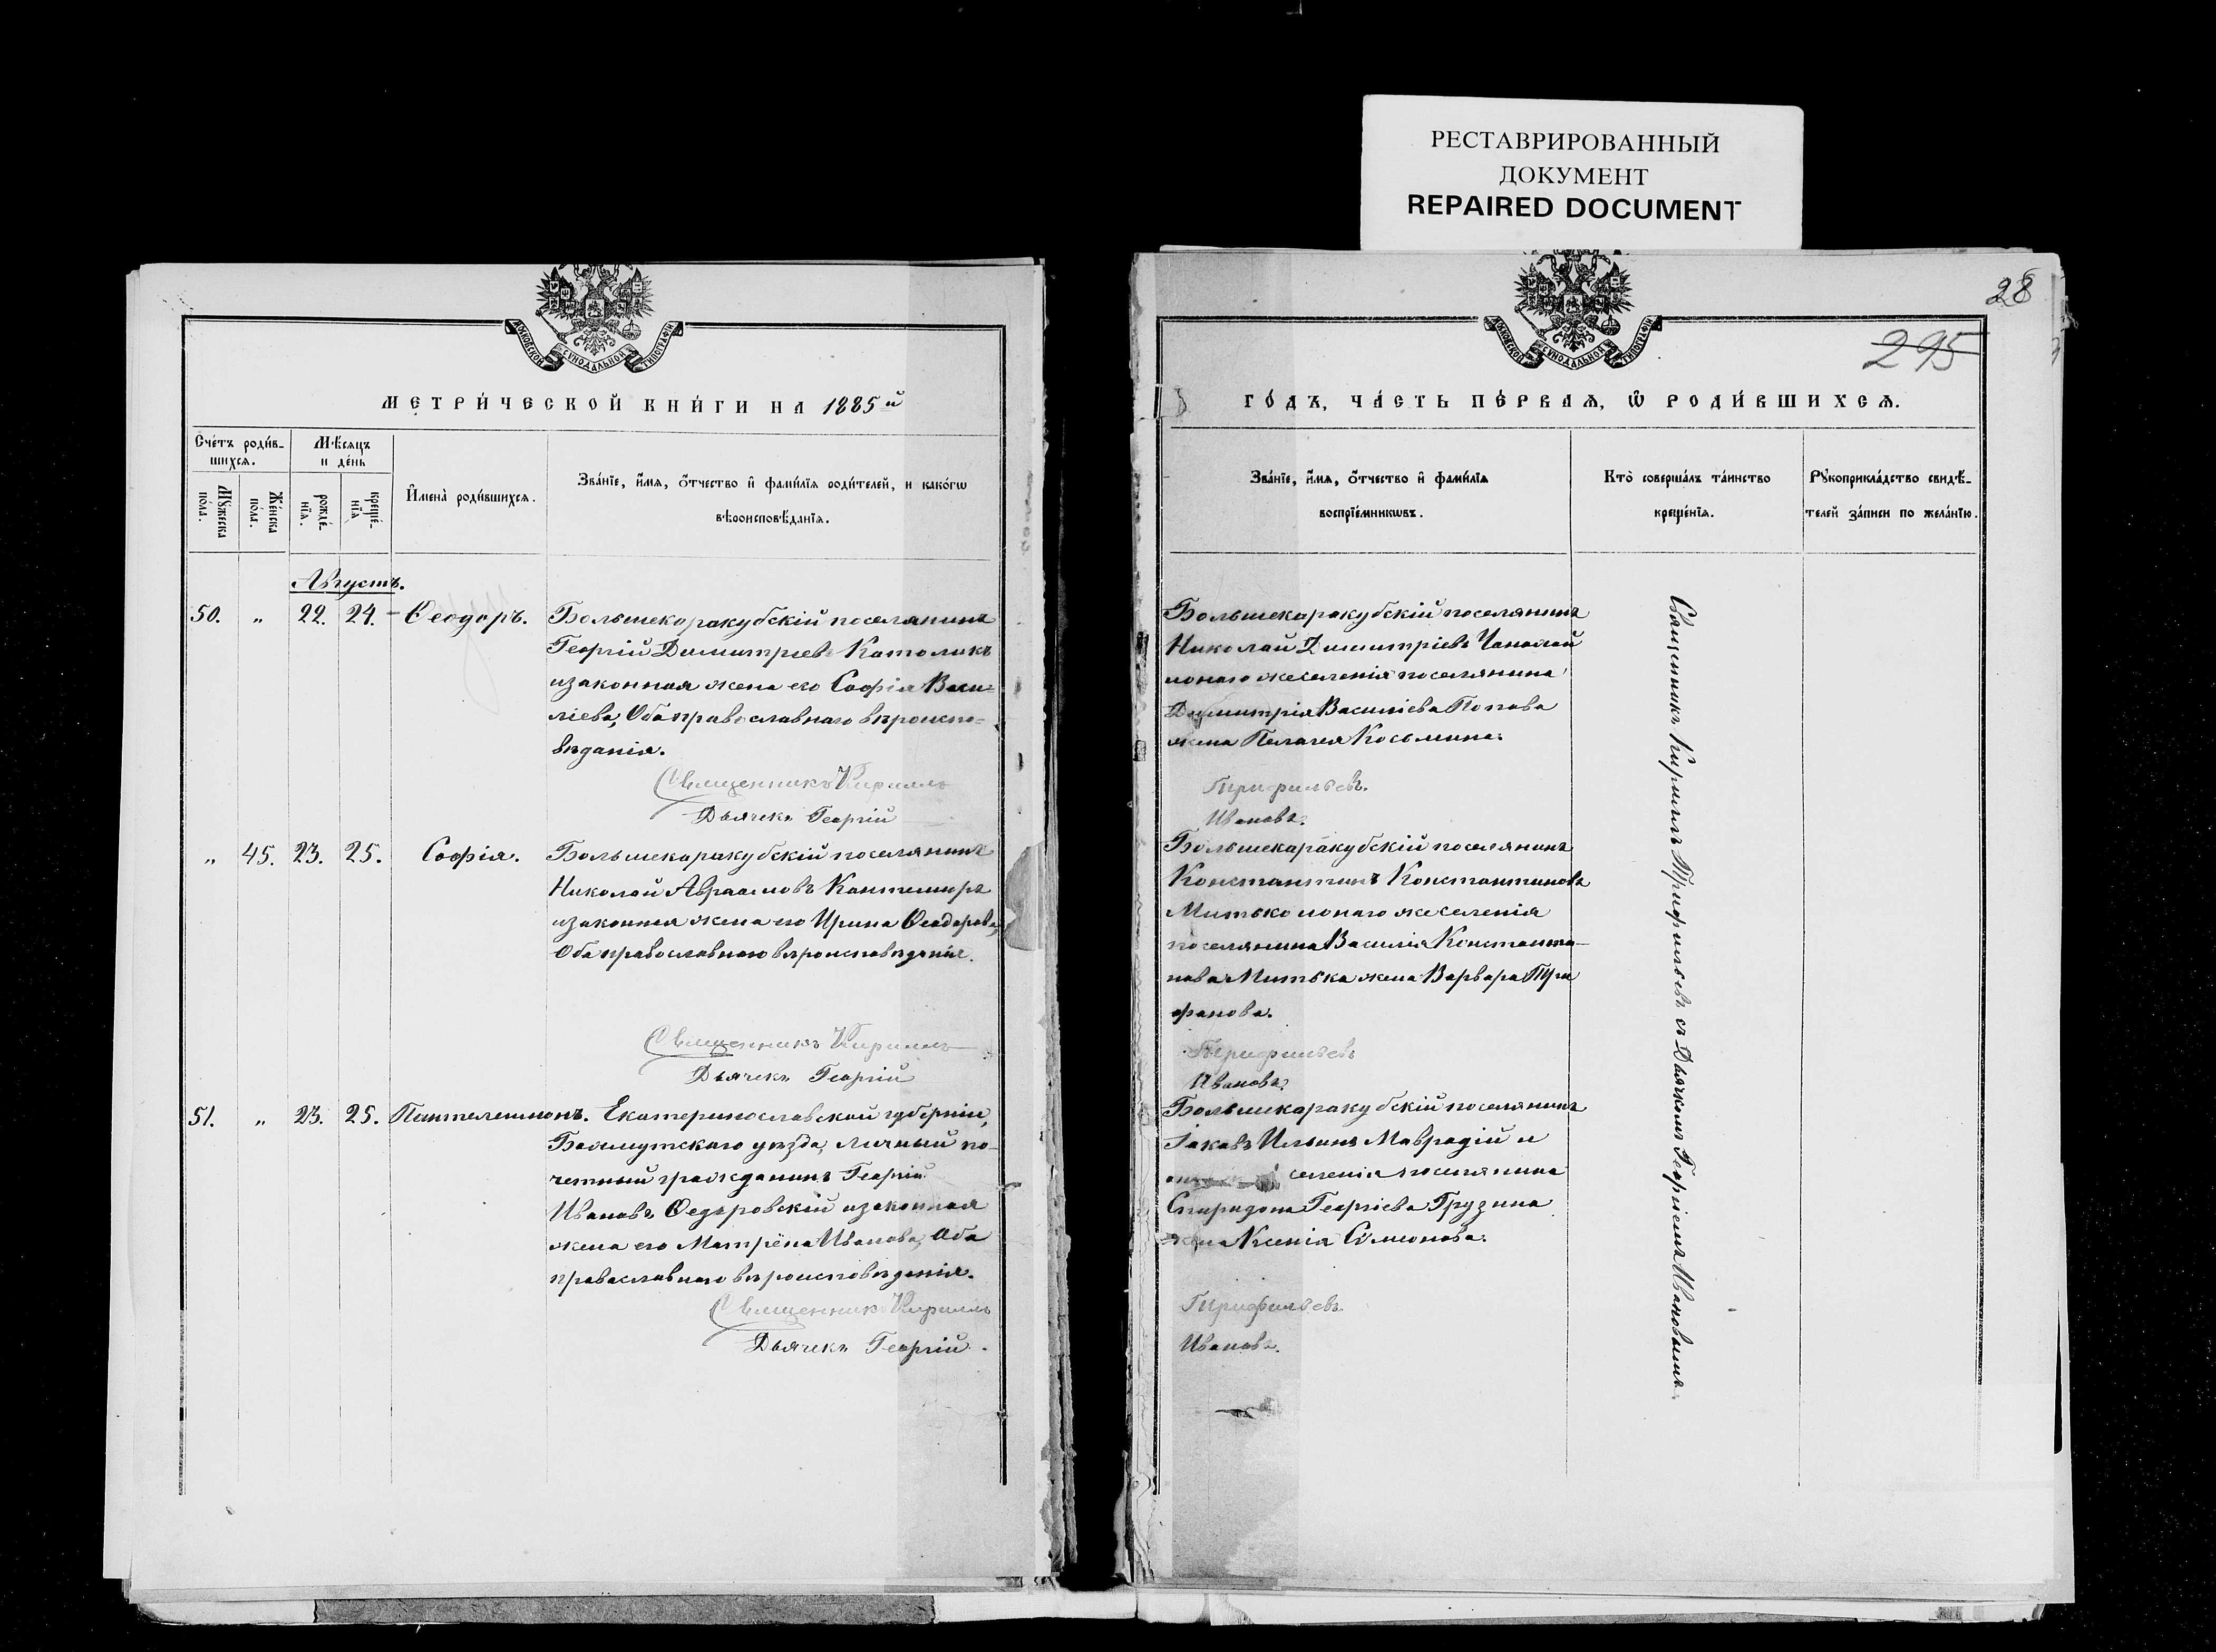 РЕСТАВРИРОВАННЫЙ
ДОКУМЕНТ
REPAIRED DOCUMENT
28
295
МОСКОВСКОЙ СѴНОДАЛЬНОЙ ТИПОГРАФІИ
МЕТРИ́ЧЕСКОЙ КНИ́ГИ НА 1885й
Сче́тъ роди́в-
шихсѧ.
Мѣ́сѧцъ
и де́нь
Мꙋ́жеска
по́ла.
Же́нска
по́ла.
рожде́-
нїѧ.
креще́-
нїѧ
И҆мена̀ роди́вшихсѧ.
Зва́нїе, и҆́мѧ, ѻ҆́тчество и҆ фами́лїѧ роди́телей, и како́гѡ
вѣроисповѣ́данїѧ.
Августъ.
50. „ 22. 24. Ѳеодоръ. Большекаракубскій поселянинъ
Георгій Димитріевъ Католикъ
изаконная жена его Софія Васи-
ліева, Оба православнаго вѣроиспо-
вѣданія.
Священникъ Кириллъ
Дьячекъ Георгій
„ 45. 23. 25. Софія. Большекаракубскій поселянинъ
Николай Авраамовъ Кантемиръ
изаконная жена его Ирина Ѳеодорова,
Оба православнаго вѣроисповѣданія.
Священникъ Кириллъ
Дьячекъ Георгій
51. „ 23. 25. Пантелеимонъ. Екатеринославской губерніи,
Бахмутскаго уѣзда, личный по-
четный гражданинъ Георгій
Ивановъ Ѳедоровскій изаконная
жена его Матрёна Иванова, Оба
православнаго вѣроисповѣданія.
Священникъ Кириллъ
Дьячекъ Георгій
МОСКОВСКОЙ СѴНОДАЛЬНОЙ ТИПОГРАФІИ
ГО́ДЪ, ЧА́СТЬ ПЕ́РВАѦ, Ѡ҆ РОДИ́ВШИХСѦ.
Зва́нїе, и҆́мѧ, ѻ҆́тчество и҆ фами́лїѧ
воспрїе́мникѡвъ.
Кто̀ соверша́лъ та́инство
креще́нїѧ.
Рꙋкоприкла́дство свидѣ́-
телей за́писи по жела́нїю.
Большекаракубскій поселянинъ
Николай Димитріевъ
ионаго жеселенія поселянина
Димитрія Василіева Попова
жена Пелагея Косьмина.
Трифильевъ.
Ивановъ.
Большекаракубскій поселянинъ
Константинъ Константиновъ
Митько ионаго жеселенія
поселянина Василія Константи-
нова Митька жена Варвара Три
фанова.
Трифильевъ
Ивановъ.
Большекаракубскій поселянинъ
Іаковъ Ильинъ Маврадій и
селенія поселянина
Спиридона Георгіева Грузина
жена Ксенія Сѵмеонова.
Трифильевъ.
Ивановъ.
Священникъ Кириллъ Трифильевъ съ Дьячкомъ Георгіемъ Ивановымъ.